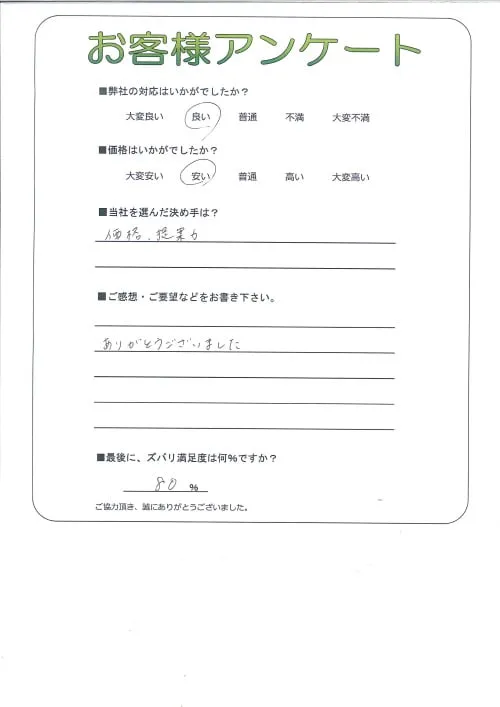 お客様アンケート
■弊社の対応はいかがでしたか？
大変良い 良い 普通 不満 大変不満
■価格はいかがでしたか？
大変安い 安い 普通 高い 大変高い
■当社を選んだ決め手は？
価格、提案力
■ご感想・ご要望などをお書き下さい。
ありがとうございました
■最後に、ズバリ満足度は何％ですか？
80 ％
ご協力頂き、誠にありがとうございました。